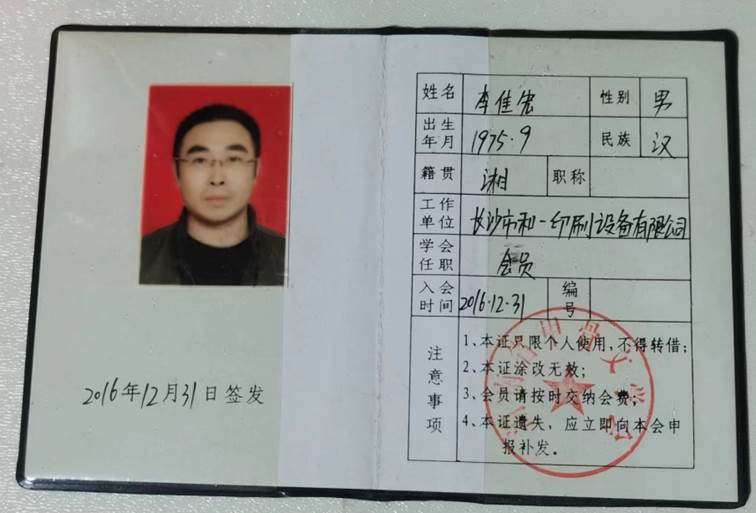 2016年12月31日签发
姓名 李佳宏 性别 男
出生年月 1975.9 民族 汉
籍贯 湘 职称
工作单位 长沙市和一印刷设备有限公司
学会任职 会员
入会时间 2016.12.31 编号
注意事项
1、本证只限个人使用,不得转借;
2、本证涂改无效;
3、会员请按时交纳会费;
4、本证遗失,应立即向本会申
报补发.